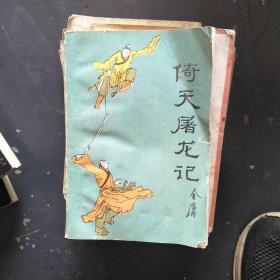 倚天屠龙记
金庸